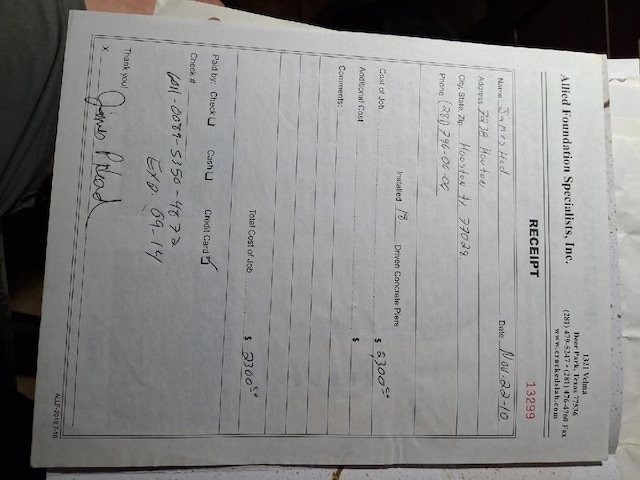 Allied Foundation Specialists, Inc.
1321 Velma
Deer Park, Texas 77536
(281) 479-5247 • (281) 476-4760 Fax
www.crackedslab.com
RECEIPT
13299
Name James Head Date Nov-22-10
Address 7838 Houston
City, State, Zip Houston Tx 77028
Phone (281)
Installed 18 Driven Concrete Piers
Cost of Job $ 2,300
Additional Cost $
Comments:
Total Cost of Job $ 2300
Paid by: Check Cash Credit Card
Check #
Exp. 09-14
Thank you!
X James P Head
ALLF-2010 7-16